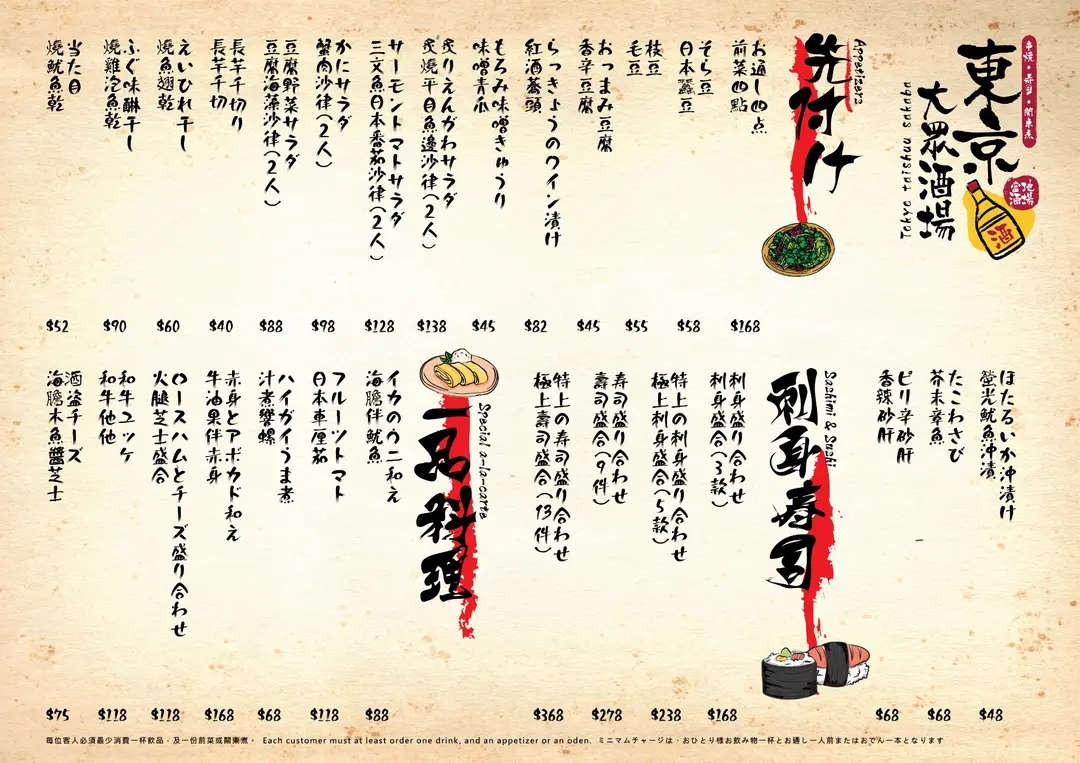 串燒・壽司・關東煮
東京
大眾酒場
Tokyo taishuu sakaba
地場
富酒
酒
先付け
Appetizers
お通し四点
前菜四點
$168
そら豆
日本蠶豆
$58
枝豆
毛豆
$55
おつまみ豆腐
香辛豆腐
$45
らっきょうのワイン漬け
紅酒蕎頭
$82
もろみ味噌きゅうり
味噌青瓜
$45
炙りえんがわサラダ
炙燒平目魚邊沙律(2人)
$138
サーモントマトサラダ
三文魚日本番茄沙律(2人)
$128
かにサラダ
蟹肉沙律(2人)
$98
豆腐野菜サラダ
豆腐海藻沙律(2人)
$88
長芋千切り
長芋千切
$40
えいひれ干し
燒魚翅乾
$60
ふぐ味醂干し
燒雞泡魚乾
$90
当た目
燒魷魚乾
$52
ほたるいか沖漬け
螢光魷魚沖漬
$48
たこわさび
芥末章魚
$68
ピリ辛砂肝
香辣砂肝
$68
刺身寿司
Sashimi & Sushi
刺身盛り合わせ
刺身盛合(3款)
$168
特上の刺身盛り合わせ
極上刺身盛合(5款)
$238
寿司盛り合わせ
壽司盛合(9件)
$278
特上の寿司盛り合わせ
極上壽司盛合(13件)
$368
一品料理
Special a-la-carte
イカのウニ和え
海膽伴魷魚
$88
フルーツトマト
日本車厘茄
$118
ハイガイうま煮
汁煮響螺
$68
赤身とアボカド和え
牛油果伴赤身
$168
ロースハムとチーズ盛り合わせ
火腿芝士盛合
$118
和牛ユッケ
和牛他他
$118
酒盗チーズ
海膽木魚醬芝士
$75
每位客人必須最少消費一杯飲品，及一份前菜或關東煮。 Each customer must at least order one drink, and an appetizer or an oden. ミニマムチャージは、おひとり様お飲み物一杯とお通し一人前またはおでん一本となります